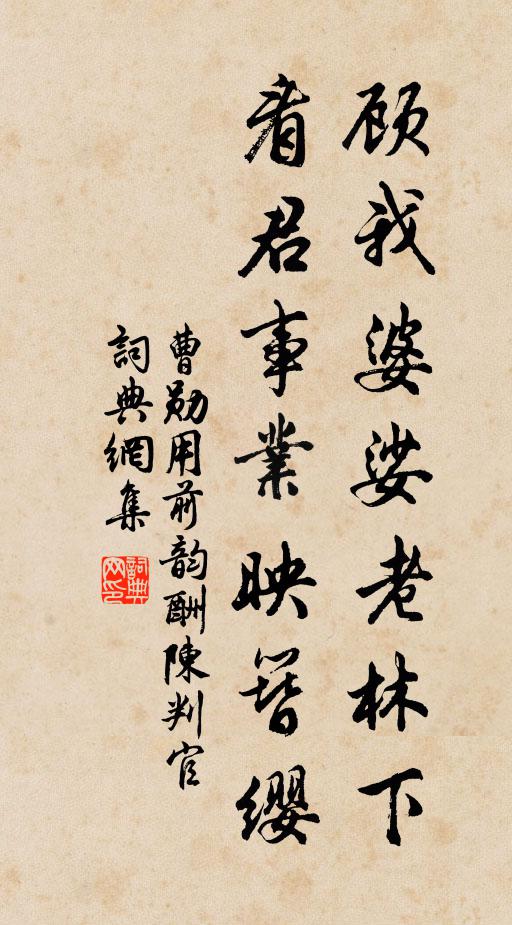 顾我婆娑老林下
看君事業映簪缨
曹勋用前韵酬陳判官
詞典網集
詞典网印